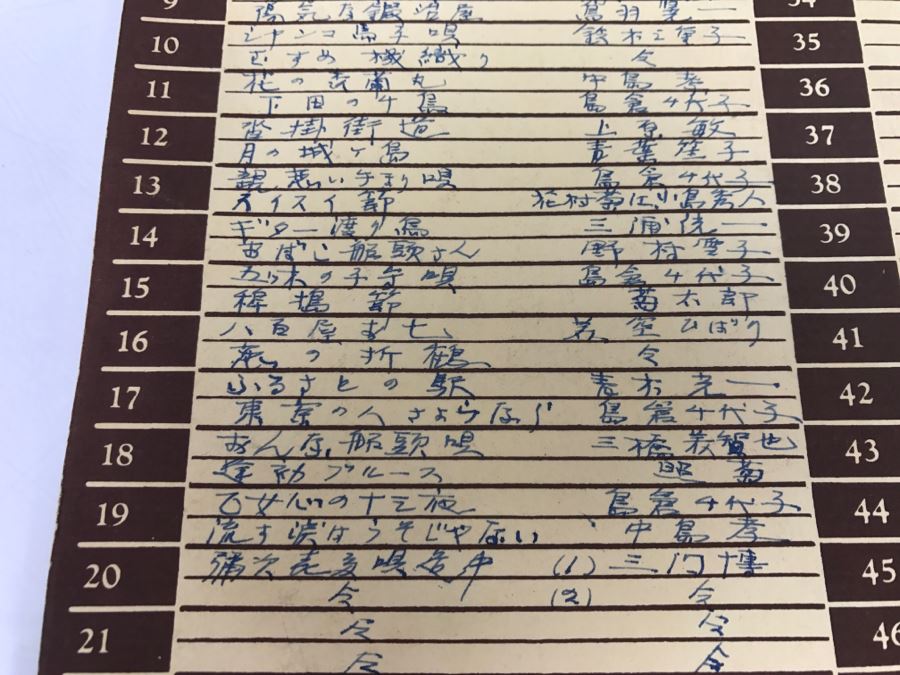 9 陽気な鍛冶屋 34
10 シャンコ馬子唄 鈴木三重子 35
むすめ機織り 〃
11 花の喜蘭丸 中島孝 36
下田の千鳥 島倉千代子
12 沓掛街道 上原敏 37
月の城ヶ島 青葉笙子
13 唄 島倉千代子 38
スイスイ節 花村菊江、小島秀人
14 ギター渡り鳥 三浦洸一 39
おばこ船頭さん 野村雪子
15 の子守唄 島倉千代子 40
稗搗節 菊太郎
16 八百屋お七 若空ひばり 41
の折鶴 〃
17 ふるさとの駅 青木光一 42
東京の人さようなら 島倉千代子
18 おんな船頭唄 三橋美智也 43
ブルース
19 乙女心の十三夜 島倉千代子 44
流す涙はうそじゃない 中島孝
20 (1) 三門博 45
〃 (2) 〃
21 〃 〃 46
〃 〃